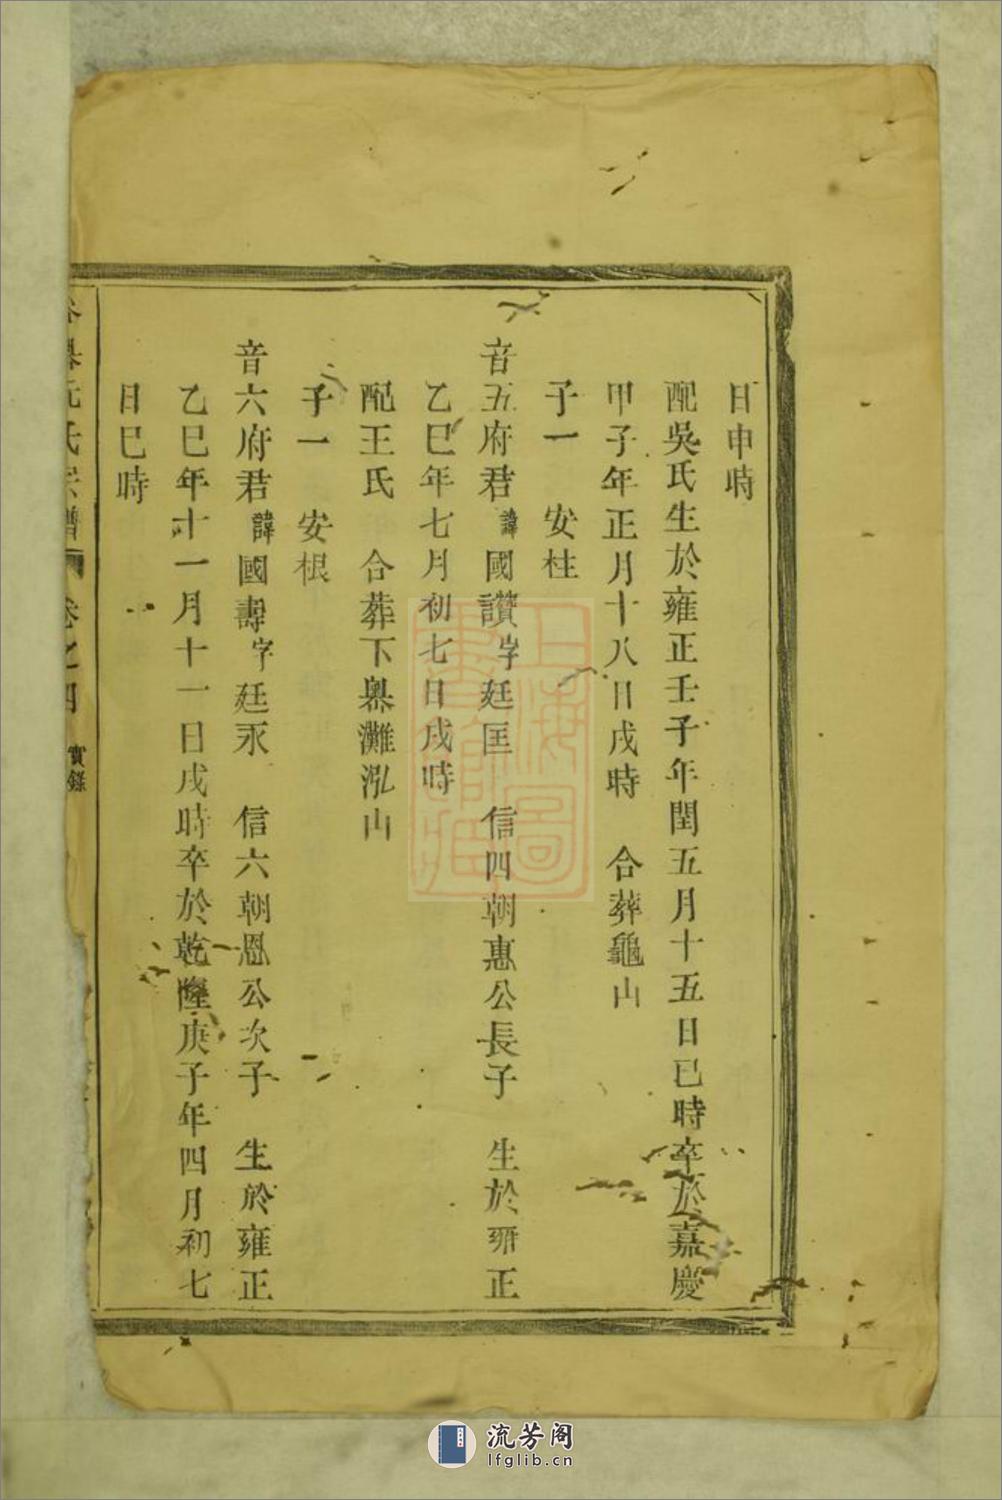 日申時
配吳氏生於雍正壬子年閏五月十五日巳時卒於嘉慶
甲子年正月十八日戌時　合葬龜山
子一　安柱
音五府君諱國讚字廷匡　信四朝惠公長子　生於雍正
乙巳年七月初七日戌時
配王氏　合葬下㙨灘泓山
子一　安根
音六府君諱國壽字廷永　信六朝恩公次子　生於雍正
乙巳年十一月十一日戌時卒於乾隆庚子年四月初七
日巳時
氏宗譜　卷之四　實錄
上海圖書館藏
流芳阁
lfglib.cn